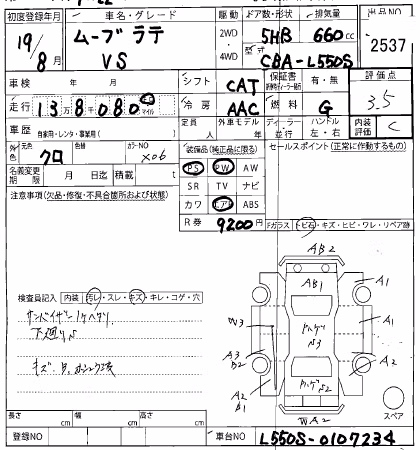 初度登録年月 車名・グレード 駆動 ドア数・形状 排気量 出品NO
19/8月 ムーブラテ VS 2WD ・ 4WD 5HB 660cc 2537
型式 CBA-L550S
車検 年 月 シフト CAT 保証書 有・無 評価点 3.5
走行 13万8千080 マイル 冷房 AAC 燃料 G
車歴 自家用・レンタ・事業用( ) 定員 人 外車モデル 年 ディーラー 並行 ハンドル 左・右 内装評価 C
外色 元色 クロ 色替 カラーNO X06 装備品(純正品に限る) セールスポイント(正常に作動するもの)
PS PW AW
名義変更期限 月 日迄 積載 t SR TV ナビ
注意事項(欠品・修復・不具合箇所および状態) カワ エアB ABS
R券 9200円 Fガラス トビ石・キズ・ヒビ・ワレ・リペア跡
AB2
検査員記入 内装 汚レ・スレ・キズ・キレ・コゲ・穴 AB1 A1 A1
サンバイザー
下廻りS
W3 A3 B2 A2
キズ
A2 B1 WA2 スペア
長さ cm 幅 cm 高さ cm
登録NO 車台NO L550S-0107234